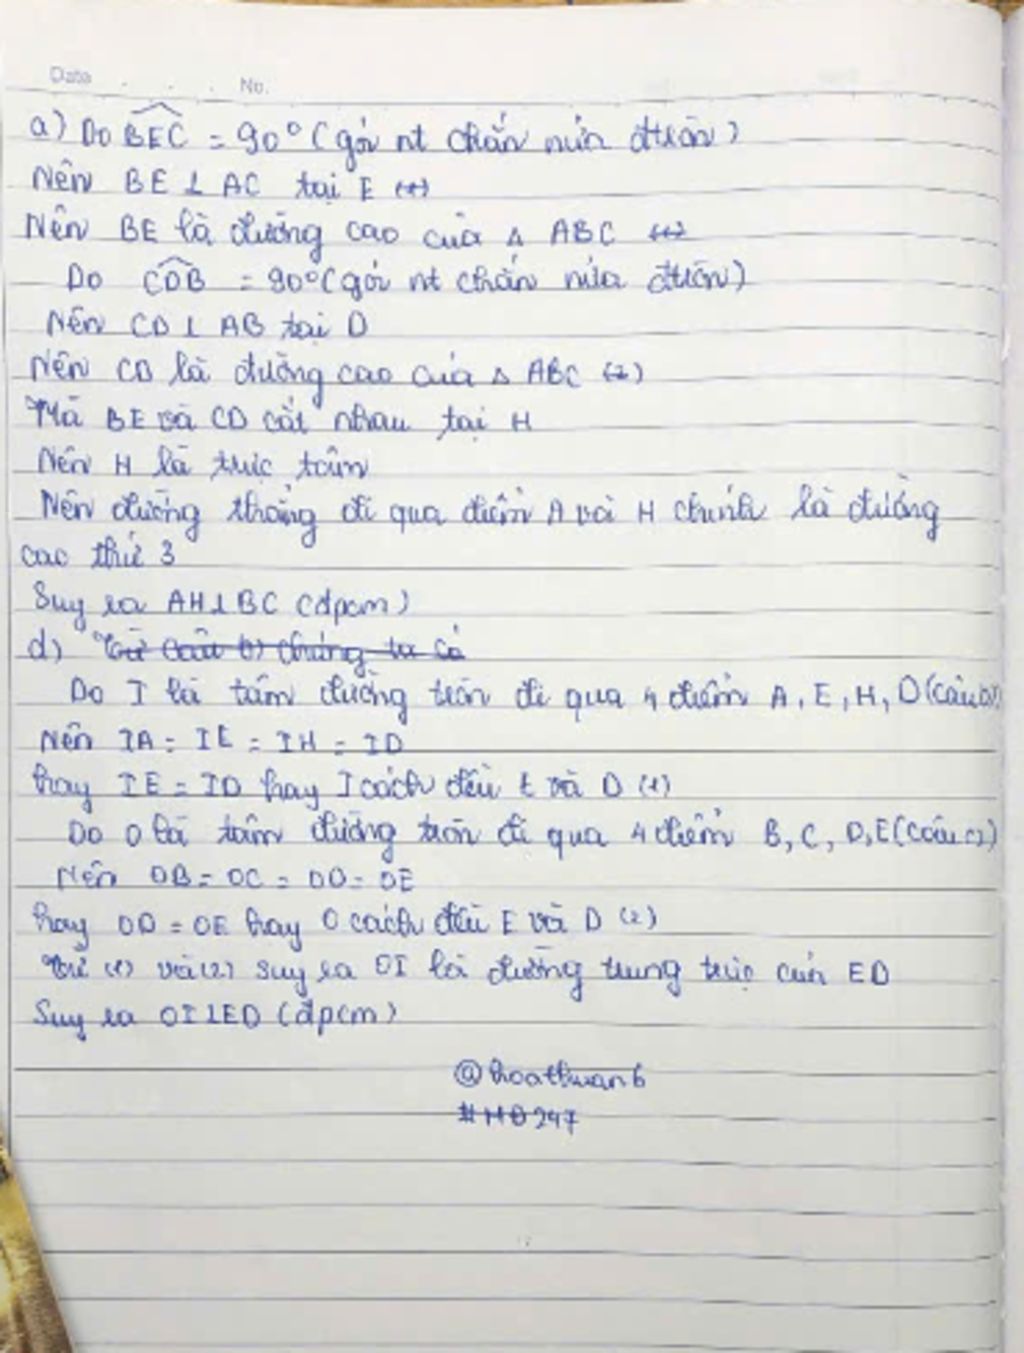 Date No.
a) Do BEC = 90° (góc nt chắn nửa đtròn)
Nên BE ⊥ AC tại E (1)
Nên BE là đường cao của Δ ABC (1)
Do CDB = 90° (góc nt chắn nửa đtròn)
Nên CD ⊥ AB tại D
Nên CD là đường cao của Δ ABC (2)
Mà BE và CD cắt nhau tại H
Nên H là trực tâm
Nên đường thẳng đi qua điểm A và H chính là đường
cao thứ 3
Suy ra AH ⊥ BC (đpcm)
d) Từ câu b) chúng ta có
Do I là tâm đường tròn đi qua 4 điểm A, E, H, D (câu b)
Nên IA = IE = IH = ID
hay IE = ID hay I cách đều E và D (1)
Do O là tâm đường tròn đi qua 4 điểm B, C, D, E (câu c)
Nên OB = OC = OD = OE
hay OD = OE hay O cách đều E và D (2)
Từ (1) và (2) suy ra OI là đường trung trực của ED
Suy ra OI ⊥ ED (đpcm)
@hoathuan6
#HĐ247